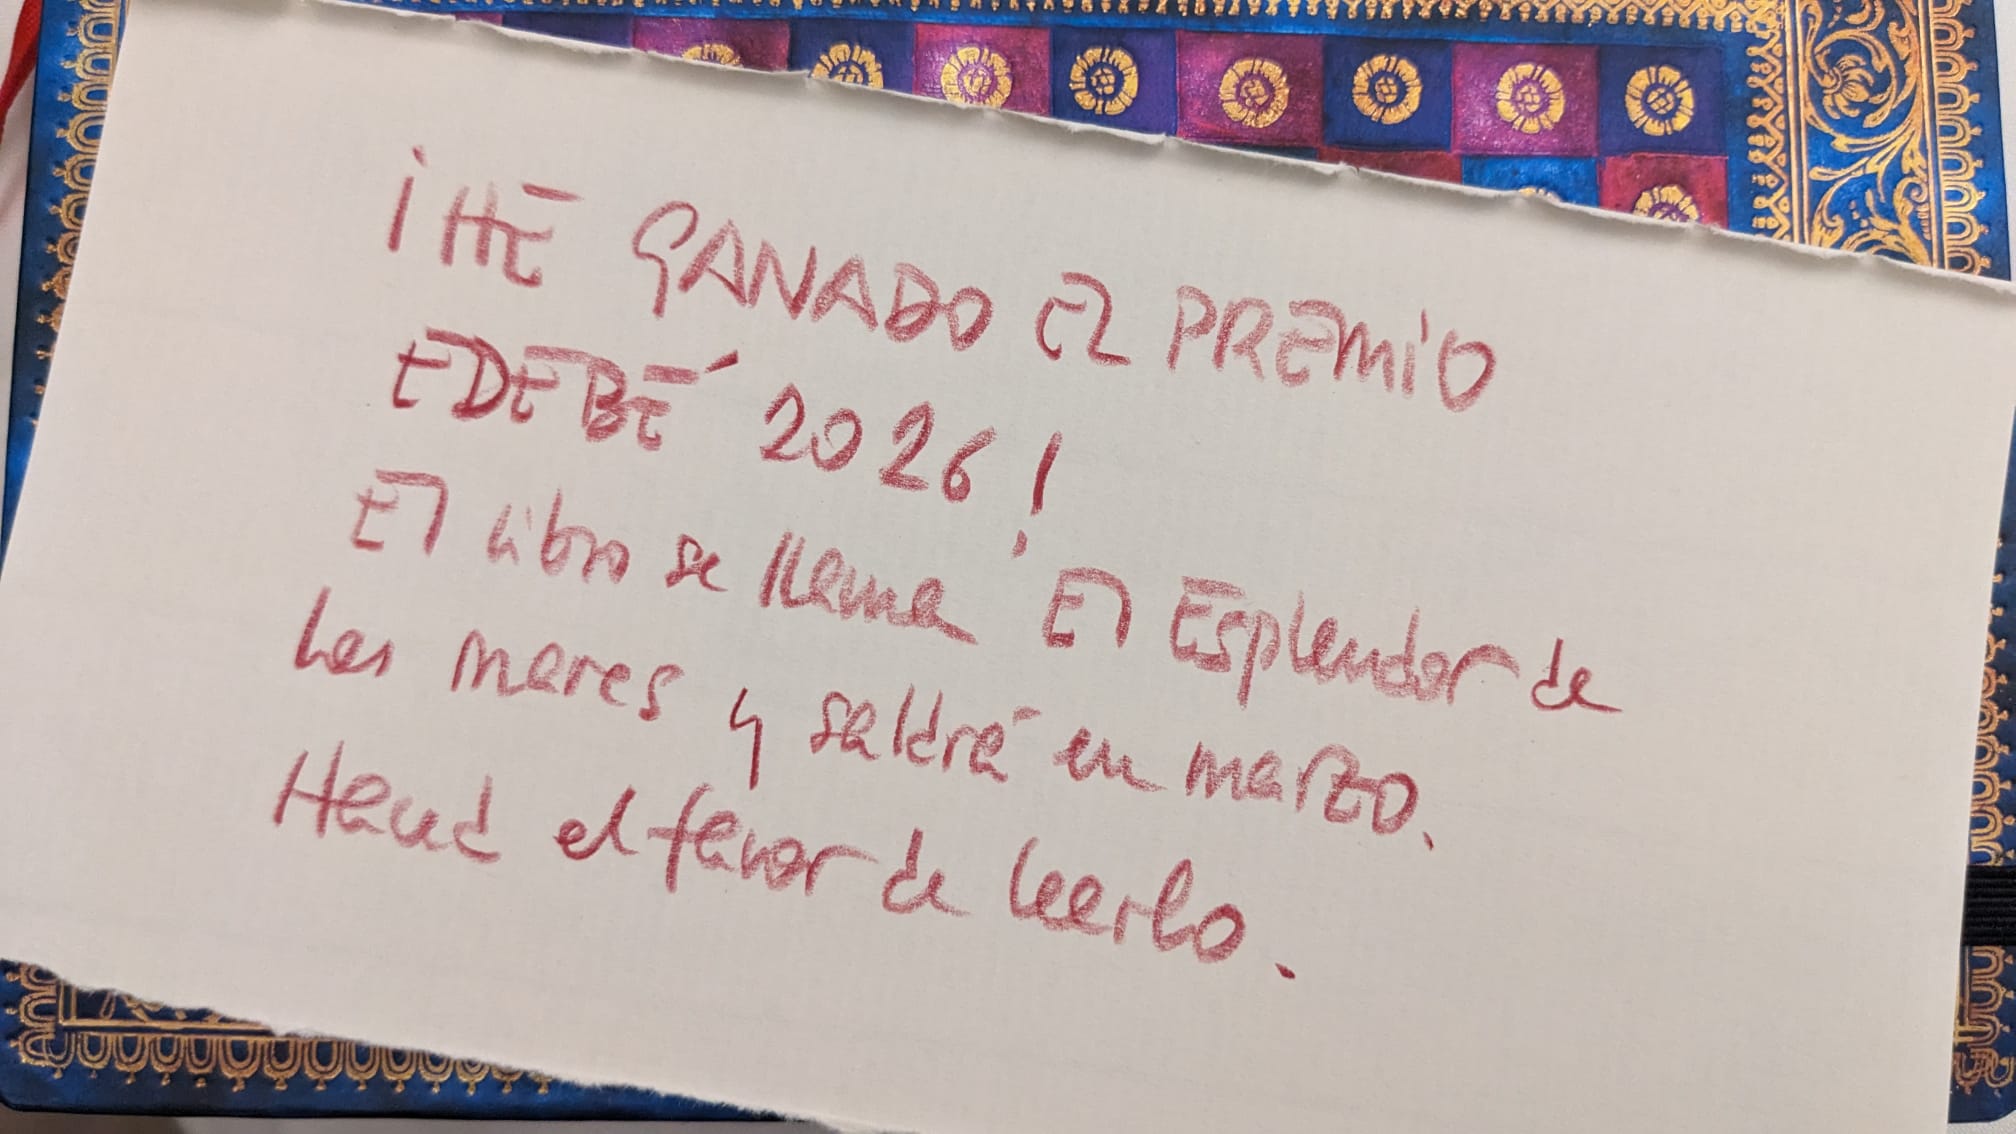 ¡HE GANADO EL PREMIO
EDEBÉ 2026!
El libro se llama El Esplendor de
Los mares y saldrá en marzo.
Haced el favor de leerlo.